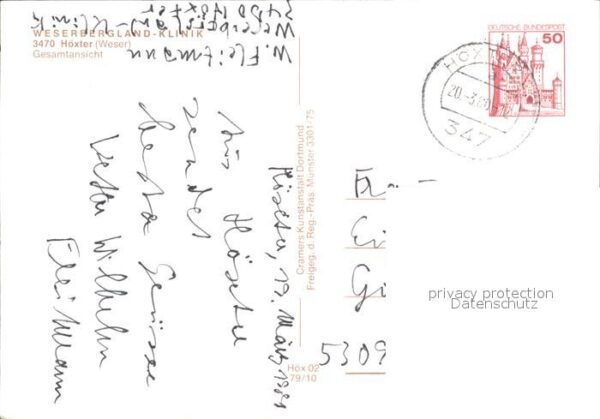 WESERBERGLAND-KLINIK
3470 Höxter (Weser)
Gesamtansicht
W. Fleitmann
Weserbergland-Klinik
3470 Höxter
DEUTSCHE BUNDESPOST
50
HÖXTER
20.-3.
347
Höxter, 19. März 1981
Aus Höxter
sendet
beste Grüsse
Vetter Wilhelm
Fleitmann
Cramers Kunstanstalt Dortmund
Freigeg. d. Reg.-Präs. Münster 3301-75
Höx 02
79/10
5309
privacy protection
Datenschutz